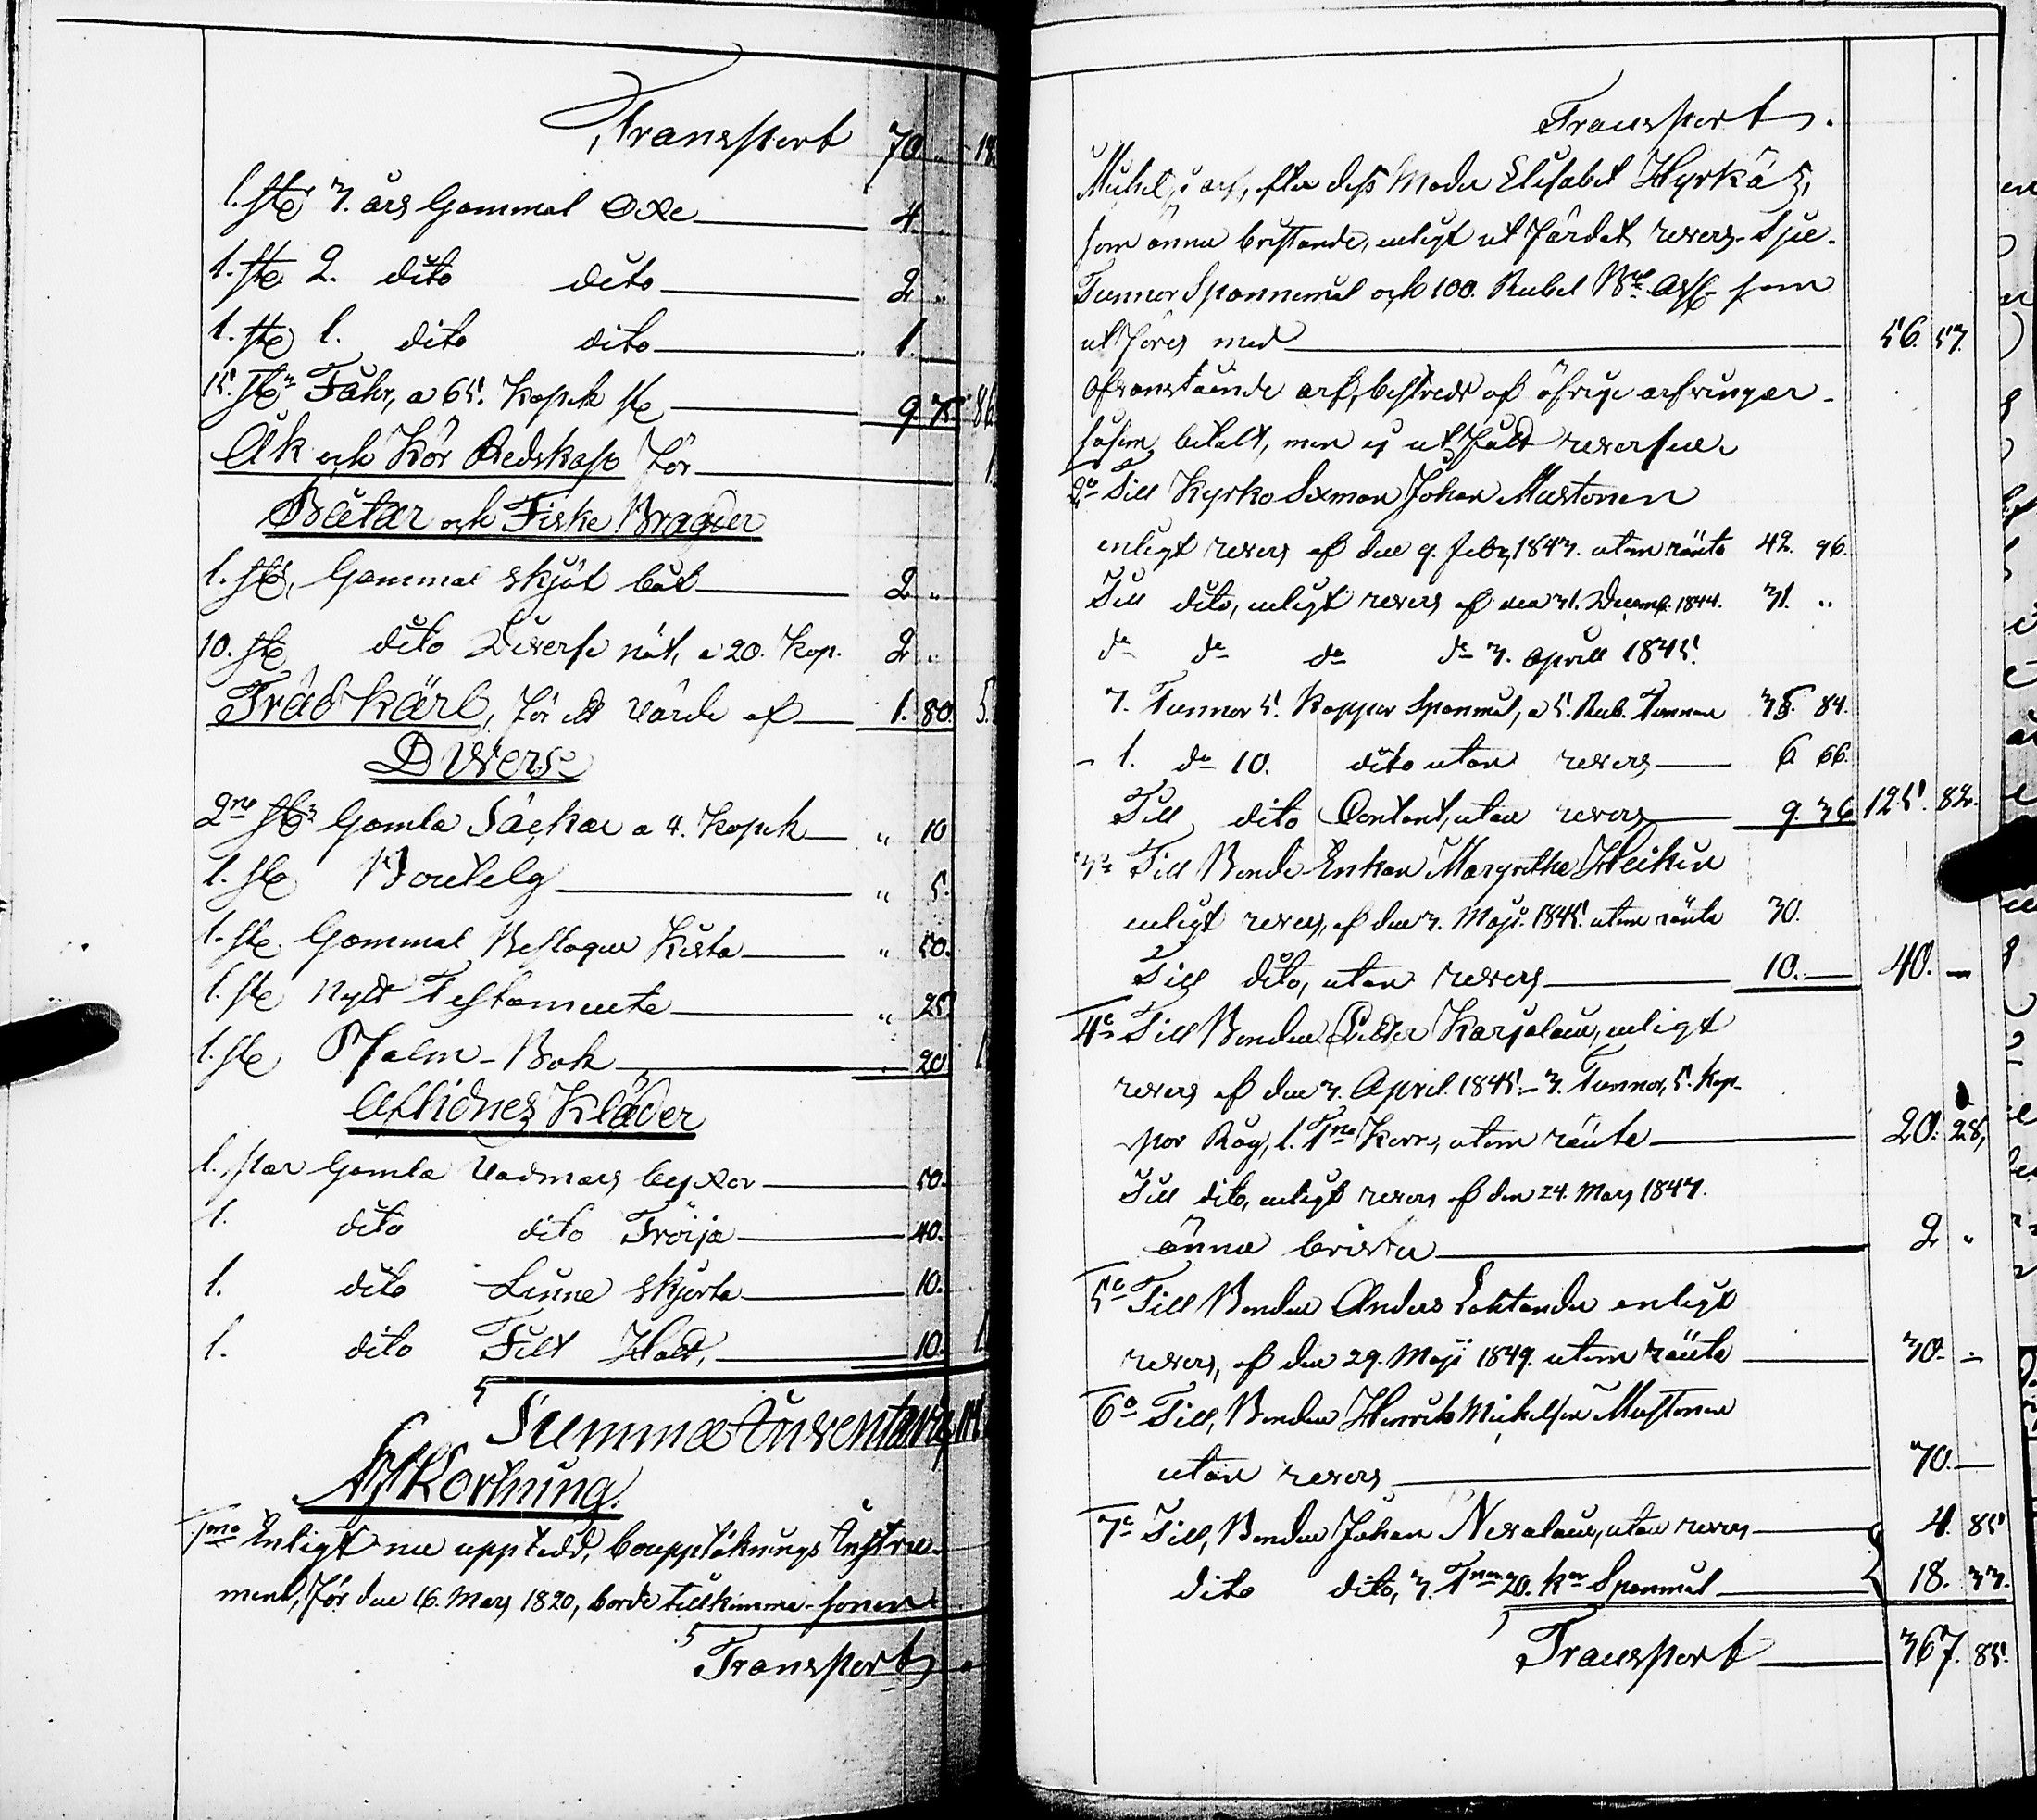 Transport 70. "
1. st. 3. års Gammal Oxe 4. "
1. st. 2. dito dito 2 "
1. st. 1. dito dito 1.
15. st. Fåhr, a 65. Kopek st. 9. 75 86
Åk och Kör Redskap för
Båtar och Fiske Bragder
1. st. Gammal skjöt båt 2 "
10. st. dito Diverse nöt, a 20. Kop. 2 "
Träd kärl, för ett värde af 1. 80. 5.
Diverse
2ne st. Gamla Säckar a 4. Kopek " 10
1. st. Boutelg " 5.
1. st. Gammal Beslagen Kista " 50.
1. st. Nytt Testamente " 25
1. st. Psalm-Bok 20
Aflidnes Kläder
1. par Gamla Vadmars byxor 50.
1. dito dito Tröija 40.
1. dito Linne skjorta 10.
1. dito Filt Hatt, 10.
Summa Inventarii
Afkortning.
1mo Enligt nu uppted, bouppteknings Instru-
ment, för den 16. Mars 1820, borde tillkomma sonen
Transport
Transport.
Mickel, i arf, efter dess Moder Elisabet Hyrkäs,
som ännu bristande, enligt utfärdat revers. Sju
Tunnor Spannemål och 100. Rubel Bco Ass. som
utföres med 56. 57.
Ofvanstående arf, bestreds af öfrige arfvingar
såsom betalt, men ej utfåld reversen
2o Till Kyrko Sexman Johan Mustonen
enligt revers af den 9. Febr. 1843. utom ränta 42. 96.
Till dito, enligt revers af den 31. Decemb. 1844. 31. "
do do do do 3. Aprill 1845.
7. Tunnor 5. Kappar Spanmål, a 5. Rub. Tunnan 35. 84.
1. do 10. dito utan revers 6. 66.
Till dito Contant, utan revers 9. 36 125. 82.
3o Till Bonde Enkan Margretha Heikin
enligt revers, af den 3. Maji. 1845. utom ränta 30.
Till dito, utan revers 10. 40. —
4o Till Bonden Petter Karjalain, enligt
revers af den 3. April 1845. 3. Tunnor, 5. Kap-
por Råg, 1. Tna Korn, utom ränta 20. 28,
Till dito, enligt revers af den 24. Mars 1847.
ännu brista 2 "
5o Till Bonden Anders Lohtander enligt
revers, af den 29. Maji 1849. utom ränta 30. —
6o Till, Bonden Henrik Mickelson Mustonen
utan revers 70. —
7o Till, Bonden Johan Nevalain, utan revers 4. 85
dito dito, 3. Tnor 20. kar Spanmål 18. 33.
Transport 367. 85.